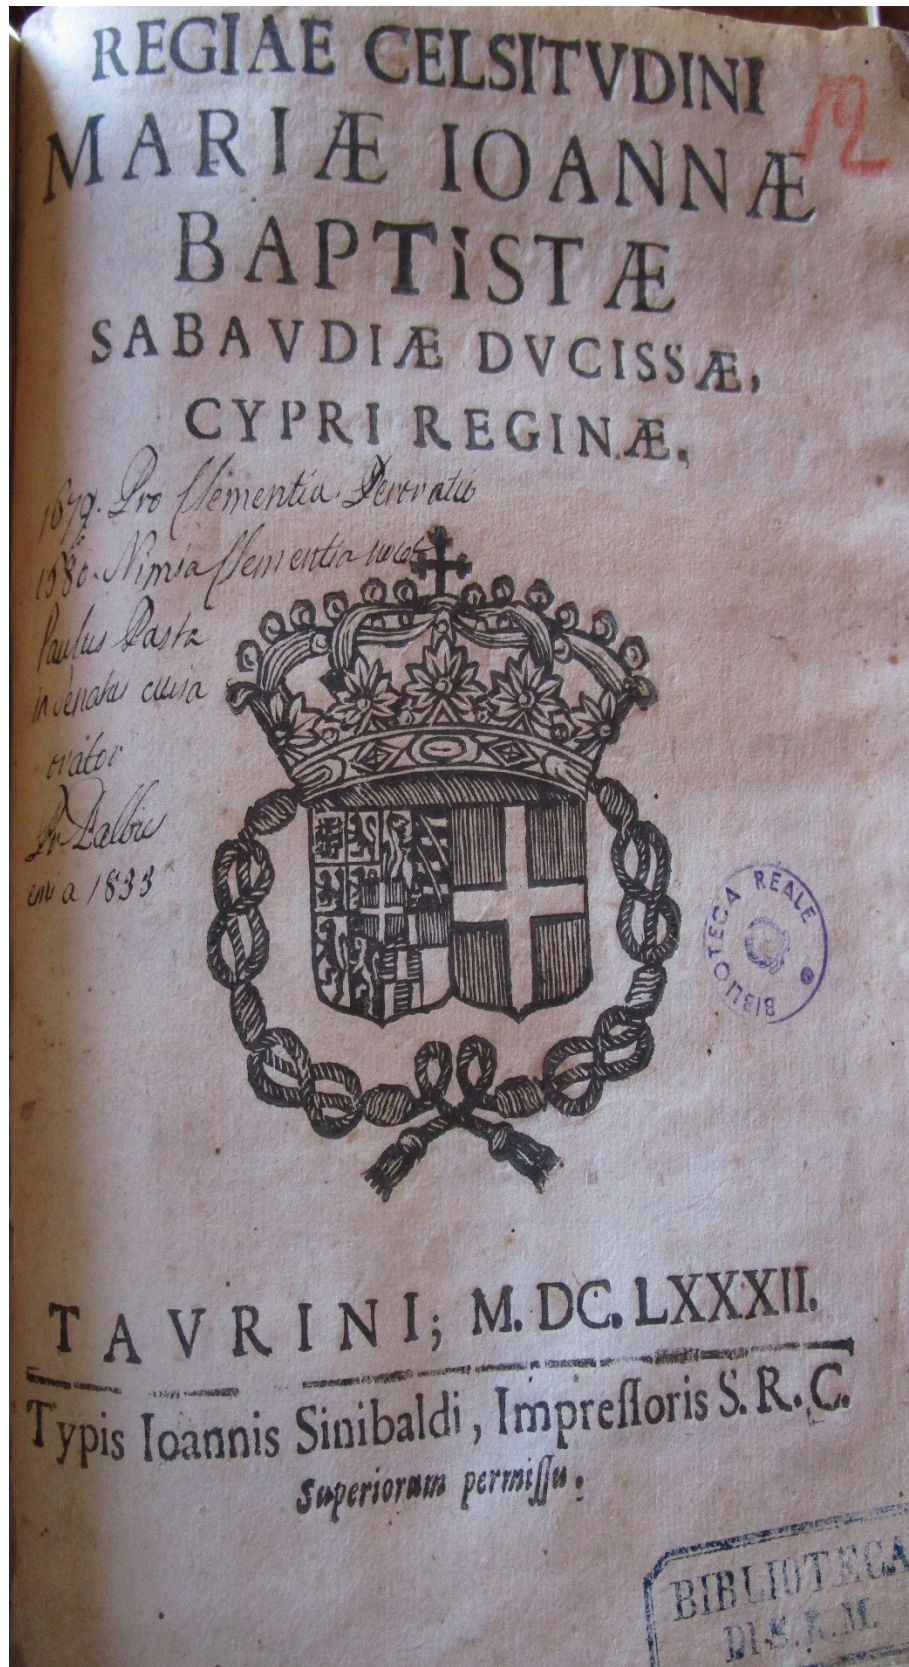 REGIAE CELSITVDINI
12
MARIÆ IOANNÆ
BAPTISTÆ
SABAVDIÆ DVCISSÆ,
CYPRI REGINÆ.
1679. Pro Clementia Peroratio
1680. Nimia Clementia
Paulus Pasta
in senatu
orator
1833
BIBLIOTECA REALE
TAVRINI; M. DC. LXXXII.
Typis Ioannis Sinibaldi, Impreſſoris S. R. C.
Superiorum permiſſu.
BIBLIOTECA
DI S. M.